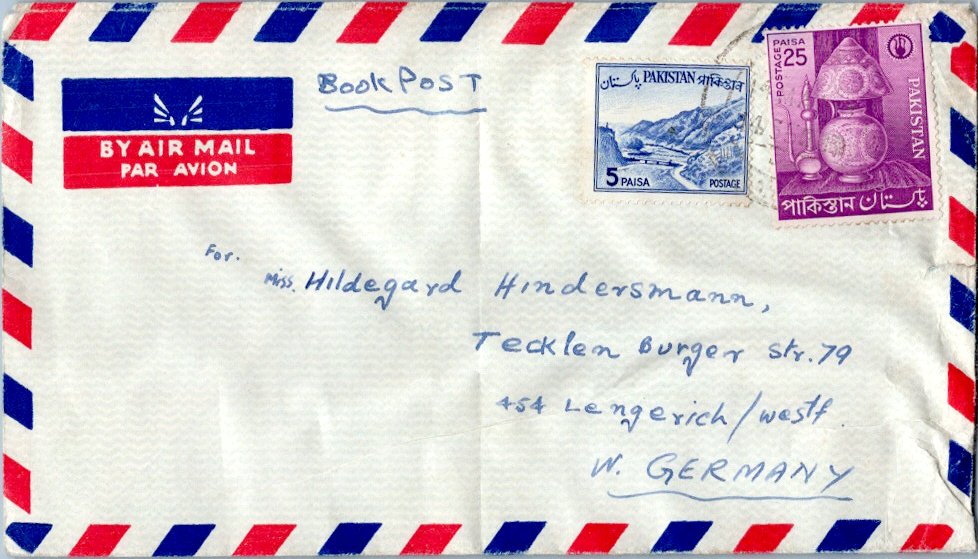 Book Post
BY AIR MAIL
PAR AVION
پاکستان PAKISTAN পাকিস্তান
5 PAISA POSTAGE
POSTAGE PAISA 25
PAKISTAN
পাকিস্তান پاکستان
For.
Miss. Hildegard Hindersmann,
Tecklen Burger str. 79
454 Lengerich/westf.
W. GERMANY